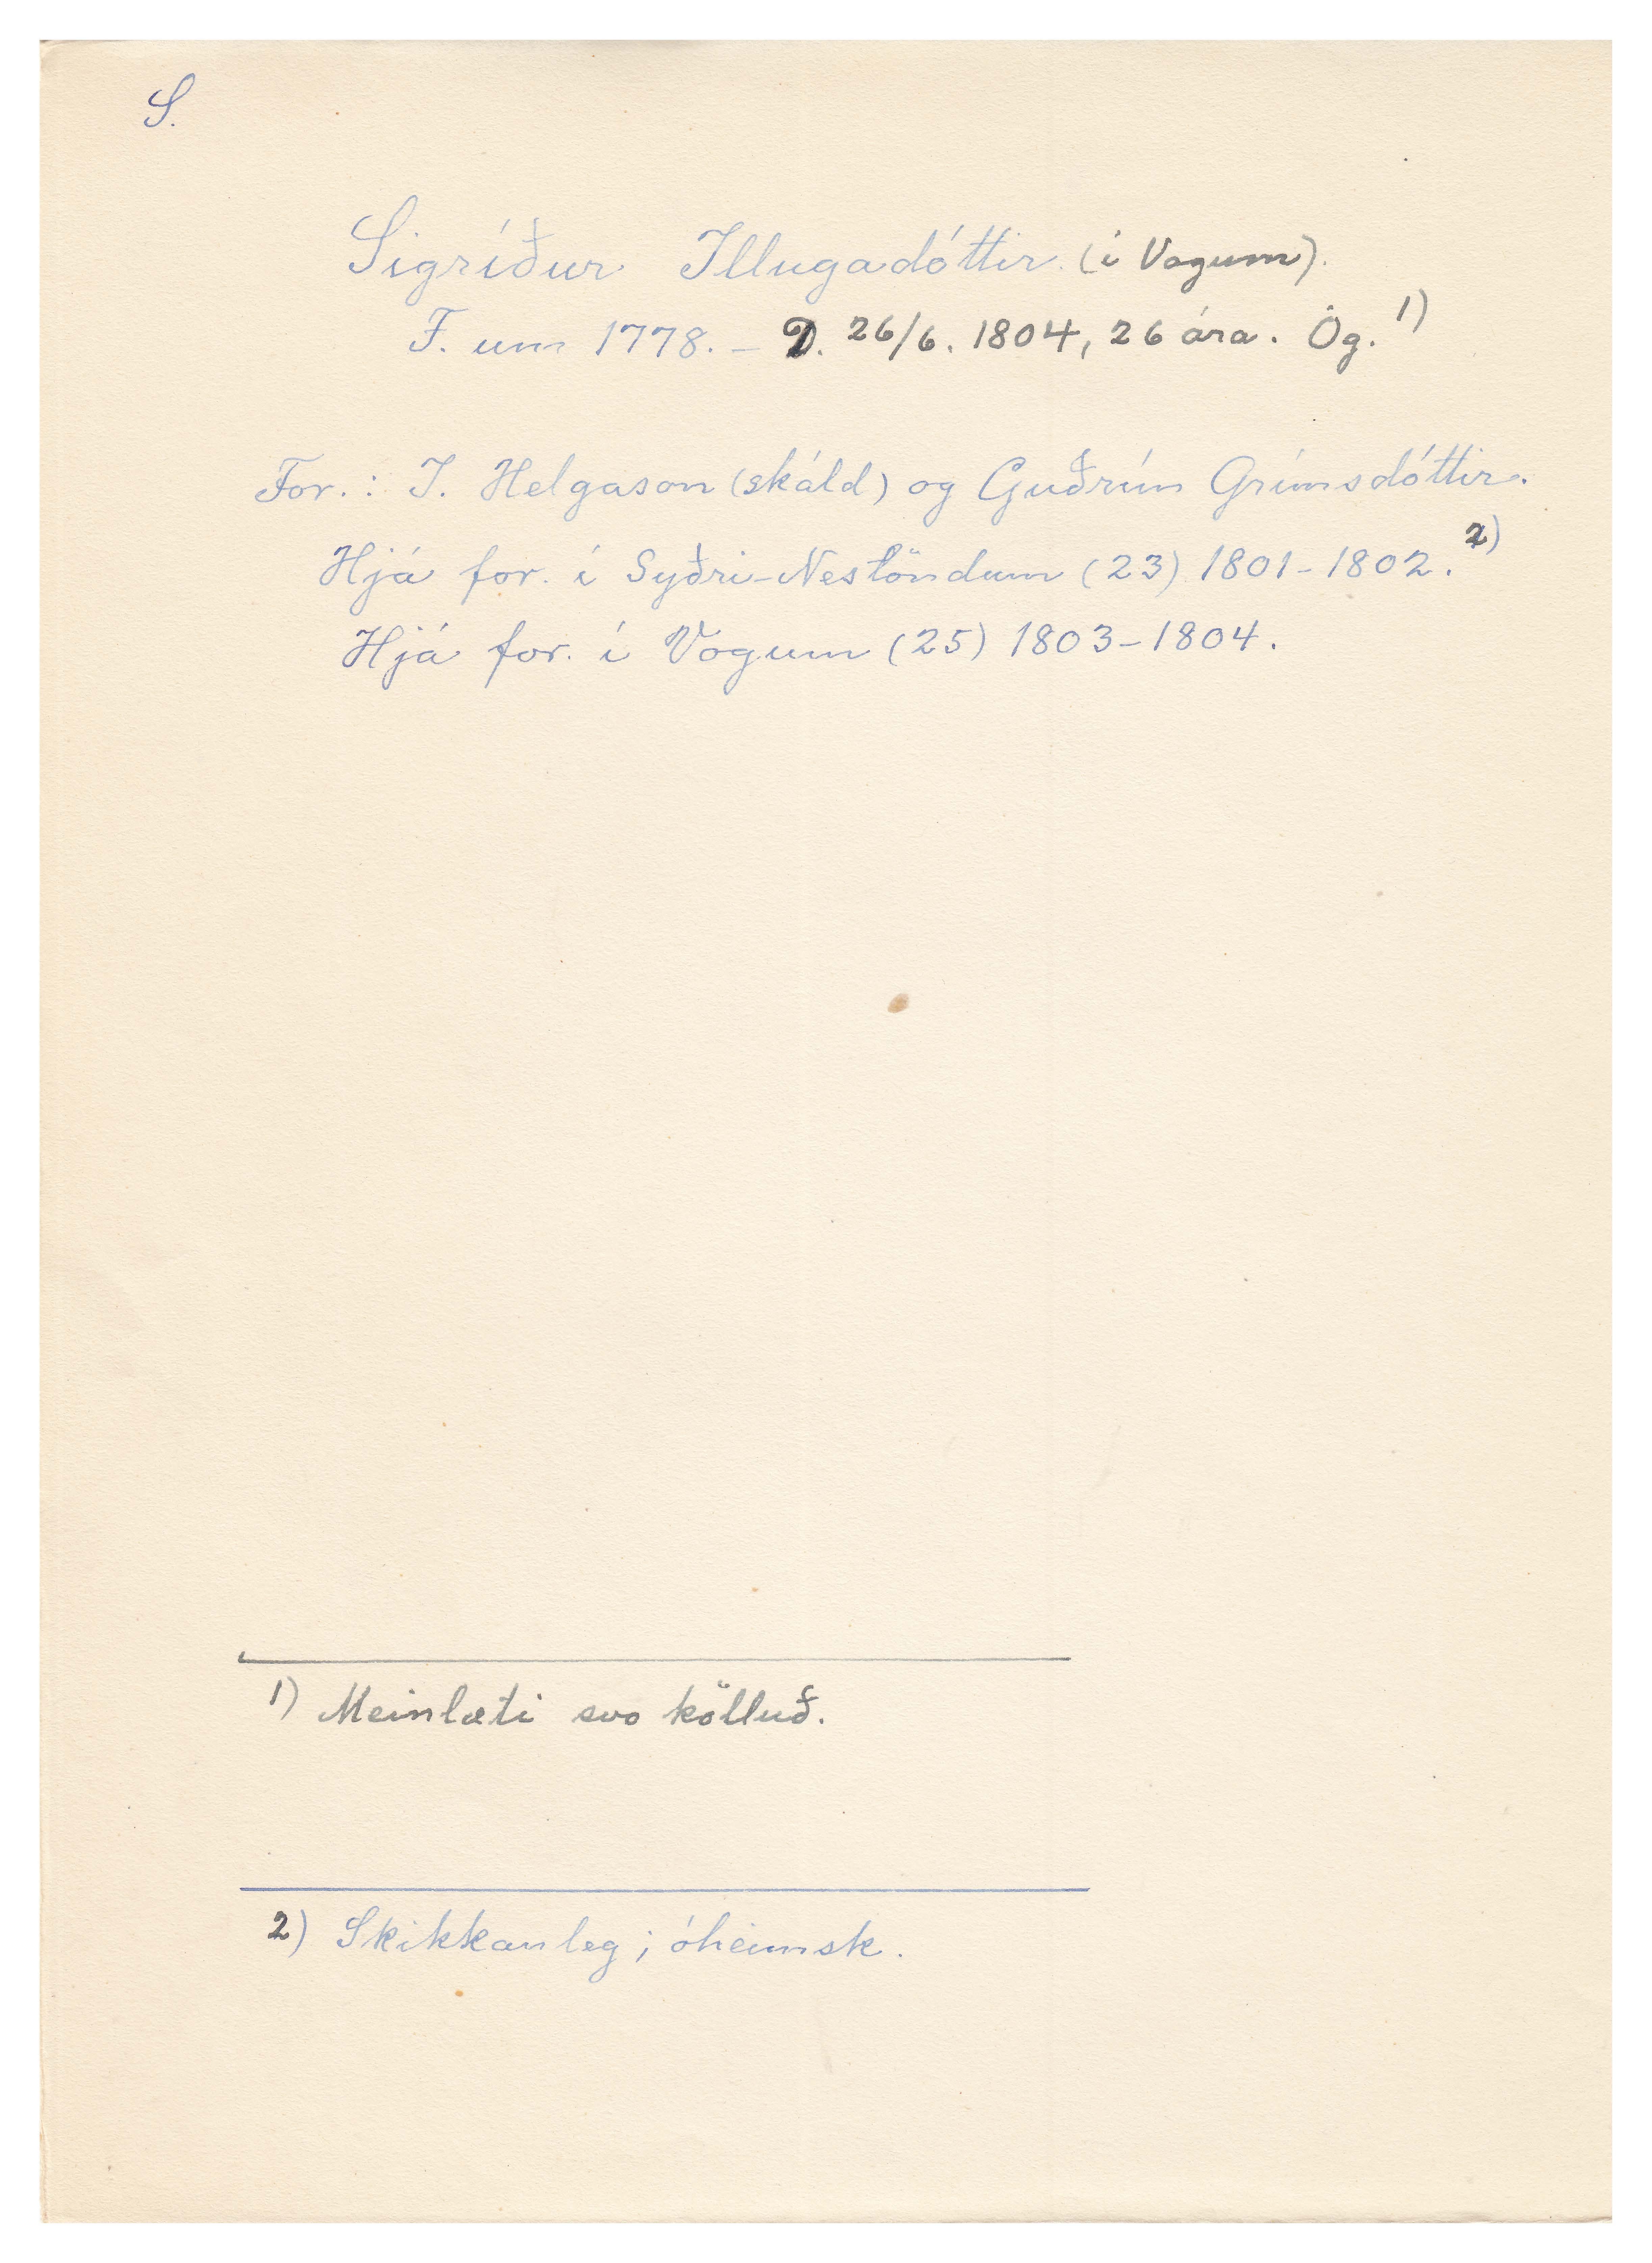 S.
Sigríður Illugadóttir (í Vogum).
F. um 1778. – D. 26/6. 1804, 26 ára. Óg. 1)
For.: I. Helgason (skáld) og Guðrún Grímsdóttir.
Hjá for. í Syðri-Neslöndum (23) 1801-1802. 2)
Hjá for. í Vogum (25) 1803-1804.
1) Meinlæti svo kölluð.
2) Skikkanleg; óheimsk.